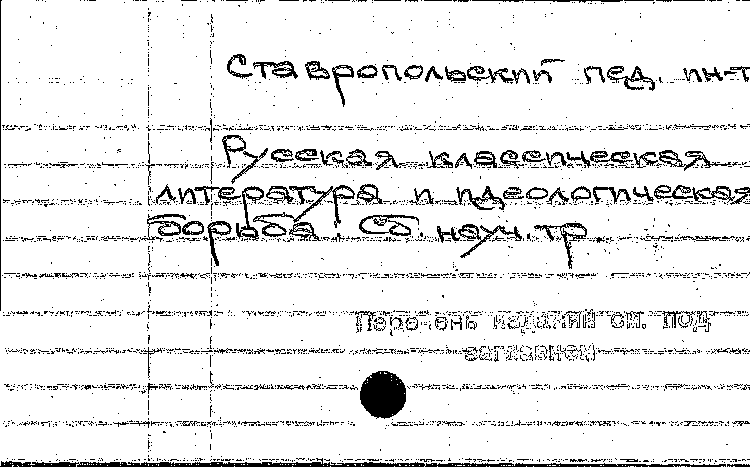 Ставропольский пед. ин-т
Русская классическая
литература и идеологическая
борьба: Сб. науч. тр
Перечень изданий см. под
заглавием